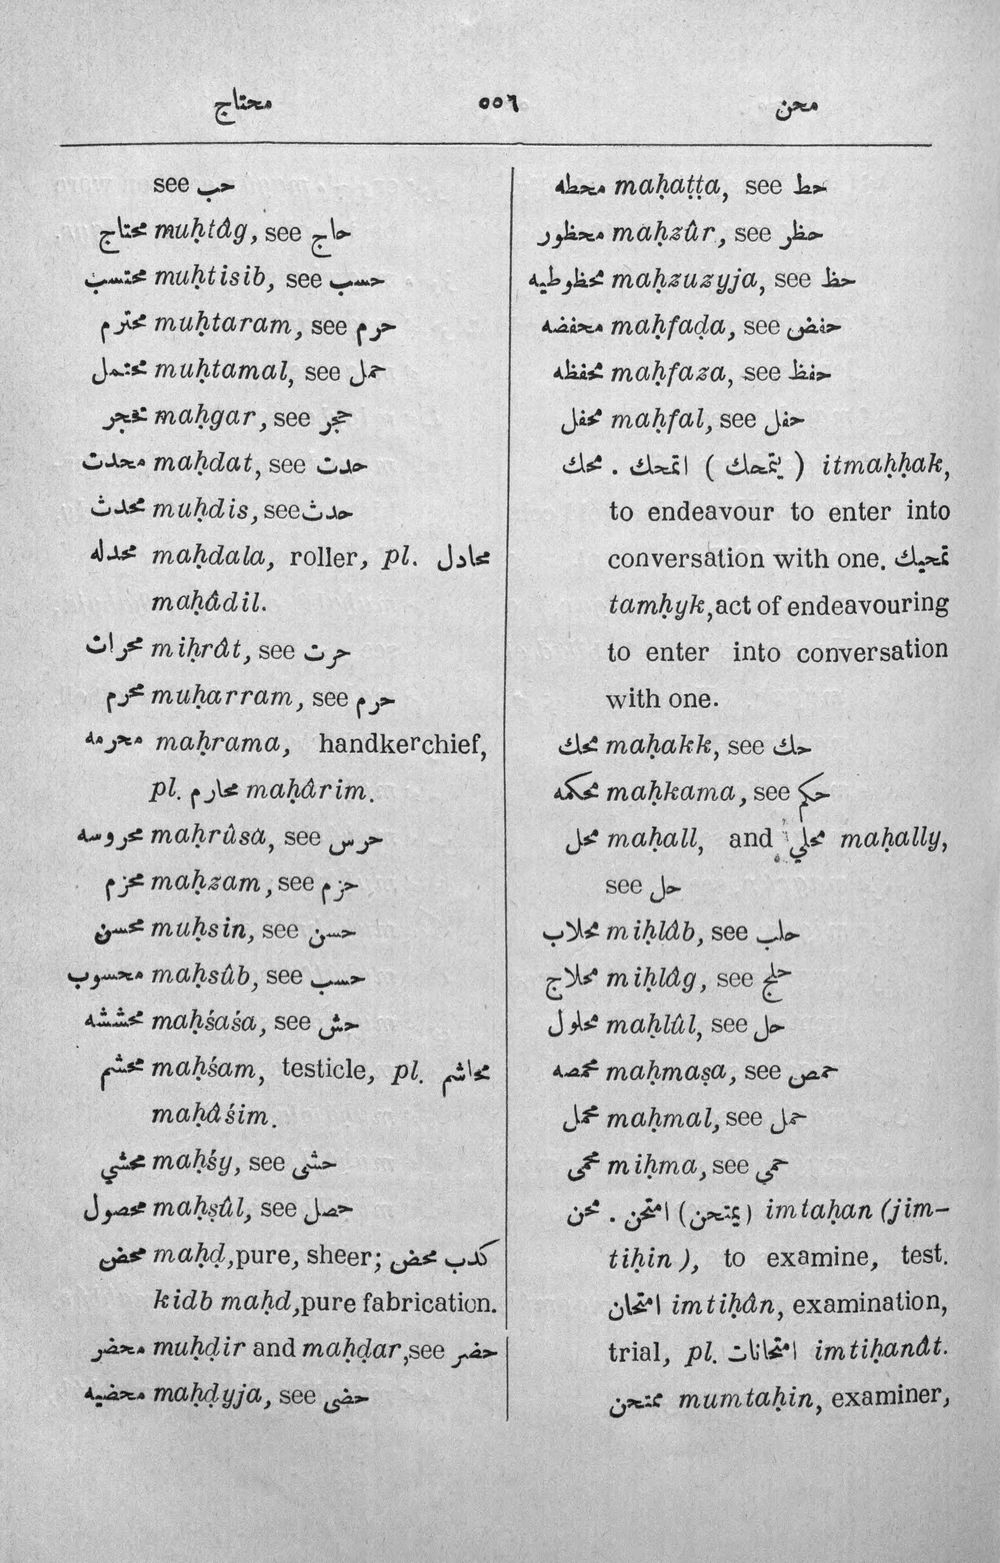 محتاج ٥٥٦ محن
see حب
محتاج muḥtâg, see حاج
محتسب muḥtisib, see حسب
محترم muḥtaram, see حرم
محتمل muḥtamal, see حمل
maḥgar, see حجر
محدت maḥdat, see حدت
محدث muḥdis, see حدث
محدله maḥdala, roller, pl. محادل
maḥâdil.
محرات miḥrât, see حرت
محرم muḥarram, see حرم
محرمه maḥrama, handkerchief,
pl. محارم maḥârim.
محروسه maḥrûsa, see حرس
محزم maḥzam, see حزم
محسن muḥsin, see حسن
محسوب maḥsûb, see حسب
محششه maḥśaśa, see حش
محشم maḥśam, testicle, pl. محاشم
maḥâśim.
محشي maḥśy, see حشى
محصول maḥṣûl, see حصل
محض maḥḍ, pure, sheer; كدب محض
kidb maḥḍ, pure fabrication.
محضر muḥḍir and maḥḍar, see حضر
محضيه maḥḍyja, see حضى
محطه maḥaṭṭa, see حط
محظور maḥzûr, see حظر
محظوظيه maḥzuzyja, see حظ
محفضه maḥfaḍa, see حفض
محفظه maḥfaza, see حفظ
محفل maḥfal, see حفل
محك . اتمحك ( يتمحك ) itmaḥḥak,
to endeavour to enter into
conversation with one. تمحيك
tamḥyk, act of endeavouring
to enter into conversation
with one.
محك maḥakk, see حك
محكمه maḥkama, see حكم
محل maḥall, and محلي maḥally,
see حل
محلاب miḥlâb, see حلب
محلاج miḥlâg, see حلج
محلول maḥlûl, see حل
محمصه maḥmaṣa, see حمص
محمل maḥmal, see حمل
محمى miḥma, see حمي
محن . امتحن (يمتحن) imtaḥan (jim-
tiḥin), to examine, test.
امتحان imtiḥân, examination,
trial, pl. امتحانات imtiḥanât.
ممتحن mumtaḥin, examiner,